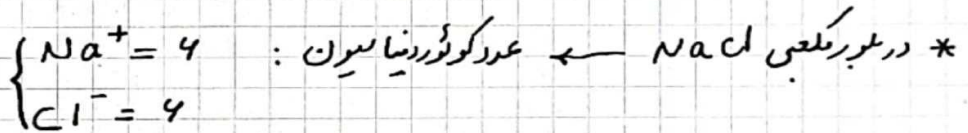 * در بلور مکعبی NaCl ← عدد کوئوردیناسیون : { Na⁺ = ۶
Cl⁻ = ۶